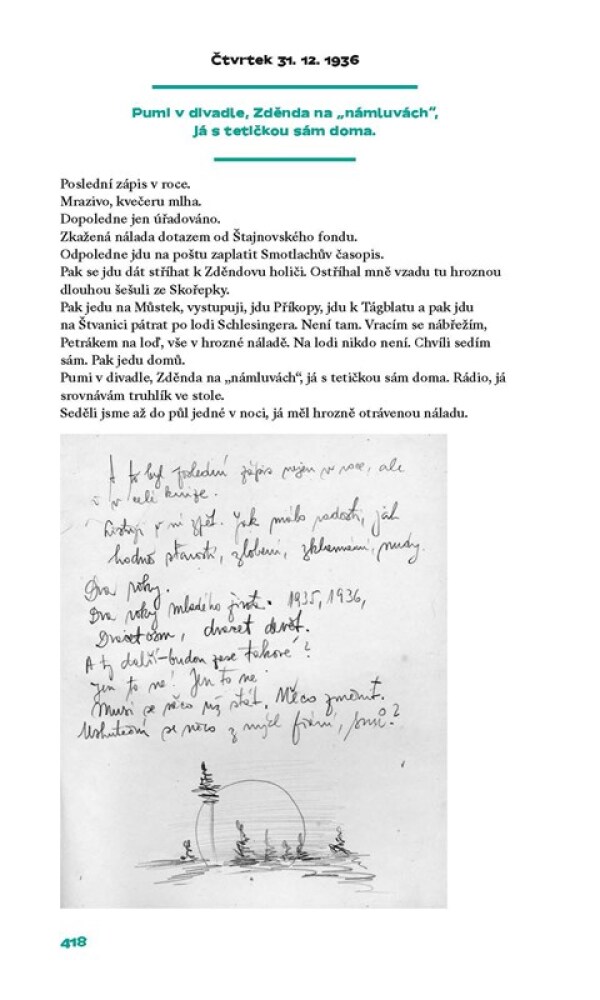 Čtvrtek 31. 12. 1936
Pumi v divadle, Zděnda na „námluvách“,
já s tetičkou sám doma.
Poslední zápis v roce.
Mrazivo, kvečeru mlha.
Dopoledne jen úřadováno.
Zkažená nálada dotazem od Štajnovského fondu.
Odpoledne jdu na poštu zaplatit Smotlachův časopis.
Pak se jdu dát stříhat k Zděndovu holiči. Ostříhal mně vzadu tu hroznou
dlouhou šešuli ze Skořepky.
Pak jedu na Můstek, vystupuji, jdu Příkopy, jdu k Tágblatu a pak jdu
na Štvanici pátrat po lodi Schlesingera. Není tam. Vracím se nábřežím,
Petrákem na loď, vše v hrozné náladě. Na lodi nikdo není. Chvíli sedím
sám. Pak jedu domů.
Pumi v divadle, Zděnda na „námluvách“, já s tetičkou sám doma. Rádio, já
srovnávám truhlík ve stole.
Seděli jsme až do půl jedné v noci, já měl hrozně otrávenou náladu.
A to byl poslední zápis nejen v roce, ale
i v celé knize.
Listuji v ní zpět. Jak málo radosti, jak
hodně starostí, zlobení, zklamání, nudy.
Dva roky.
Dva roky mladého života. 1935, 1936,
Dvacet osm, dvacet devět.
A ty další – budou zase takové?
Jen to ne! Jen to ne
Musí se něco už stát. Něco změnit.
Uskuteční se něco z mých přání, snů?
418